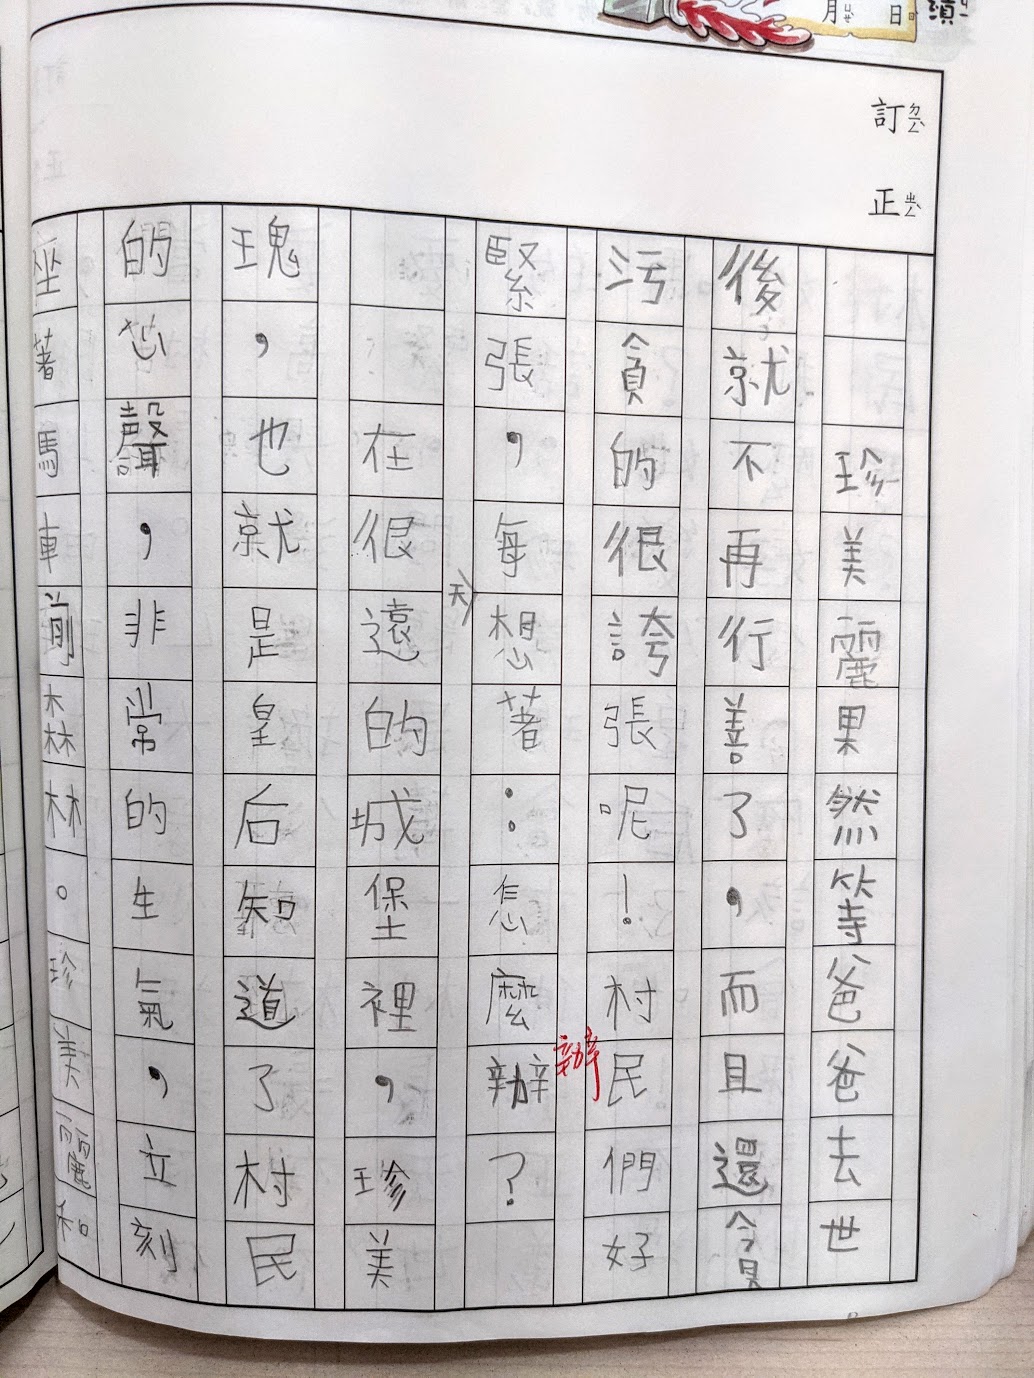 績
月 日
訂正
珍美麗果然等爸爸去世
後就不再行善了，而且還貪
污貪的很誇張呢！村民們好
緊張，每天想著：怎麼辦？
辦
在很遠的城堡裡，珍美
瑰，也就是皇后知道了村民
的怨聲，非常的生氣，立刻
座著馬車前森林。珍美麗和